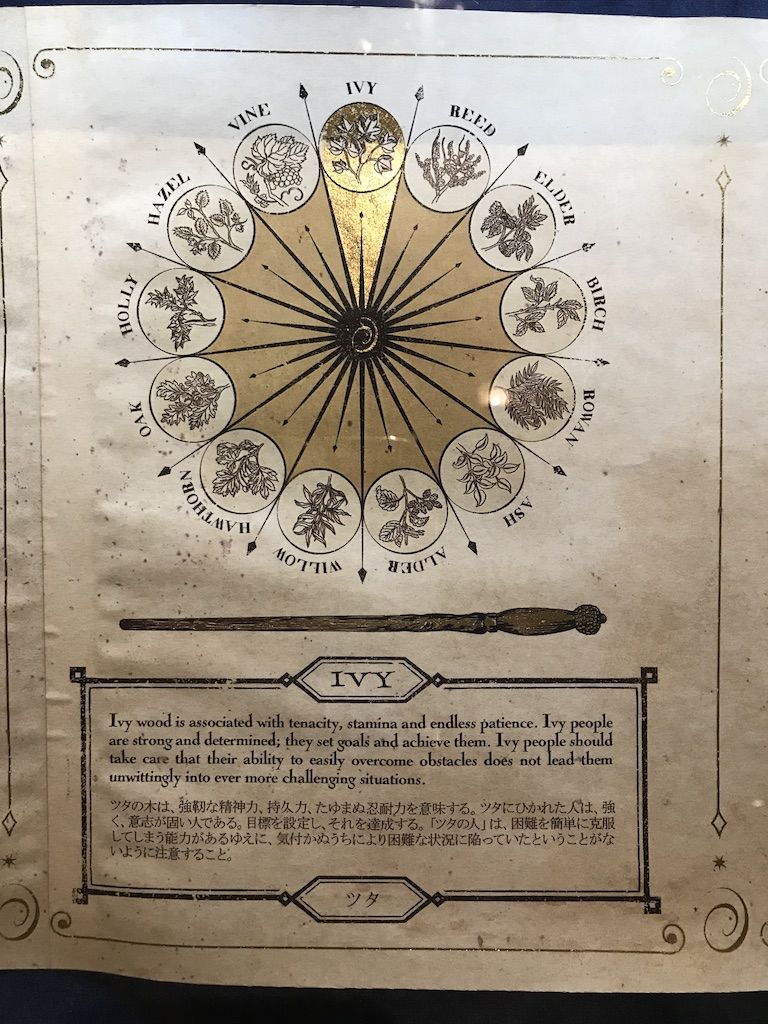 IVY
REED
ELDER
BIRCH
ROWAN
ASH
ALDER
WILLOW
HAWTHORN
OAK
HOLLY
HAZEL
VINE
IVY
Ivy wood is associated with tenacity, stamina and endless patience. Ivy people
are strong and determined; they set goals and achieve them. Ivy people should
take care that their ability to easily overcome obstacles does not lead them
unwittingly into ever more challenging situations.
ツタの木は、強靭な精神力、持久力、たゆまぬ忍耐力を意味する。ツタにひかれた人は、強
く、意志が固い人である。目標を設定し、それを達成する。「ツタの人」は、困難を簡単に克服
してしまう能力があるゆえに、気付かぬうちにより困難な状況に陥っていたということがな
いように注意すること。
ツタ